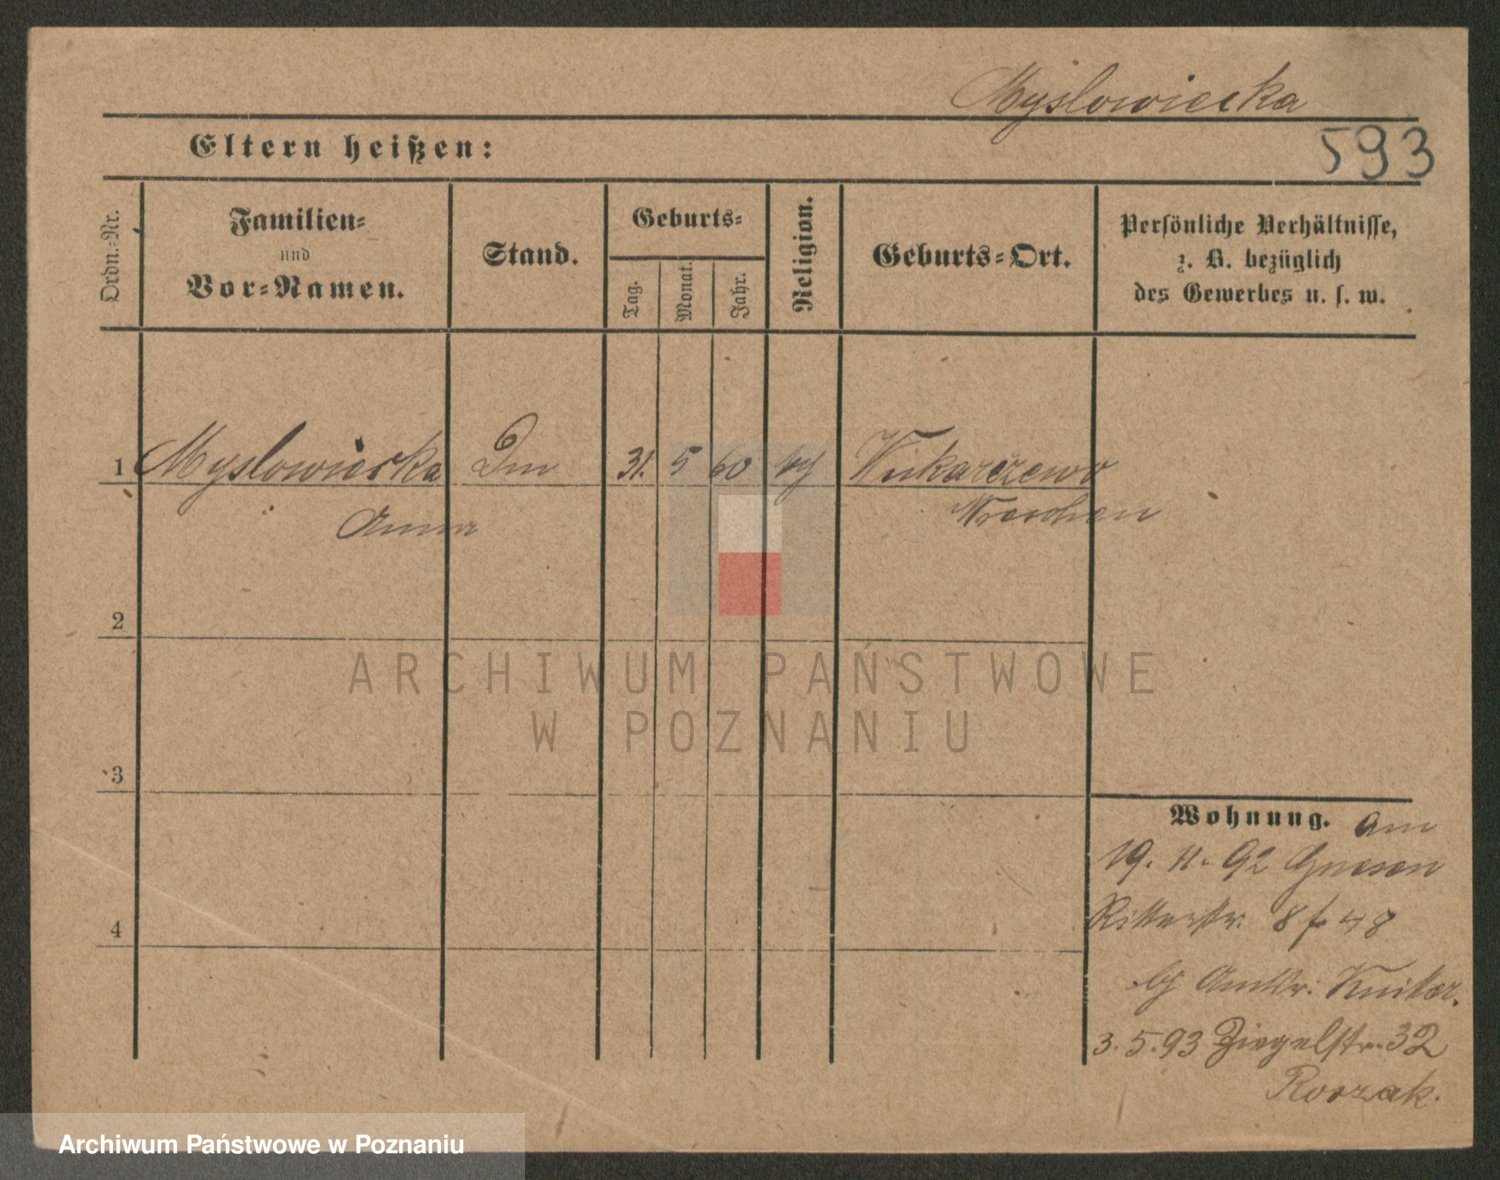 Myslowiecka
593
Eltern heißen:
Ordn.-Nr.
Familien-
und
Vor-Namen.
Stand.
Geburts-
Tag.
Monat.
Jahr.
Religion.
Geburts-Ort.
Persönliche Verhältnisse,
z. B. bezüglich
des Gewerbes u. s. w.
1 Myslowiecka 31. 5 60
Anna Wreschen
2
ARCHIWUM PAŃSTWOWE
W POZNANIU
3
Wohnung. am
19. 11. 92 Gnesen
Ritterstr. 8
4
3. 5. 93 Ziegelstr. 32
Roszak.
Archiwum Państwowe w Poznaniu